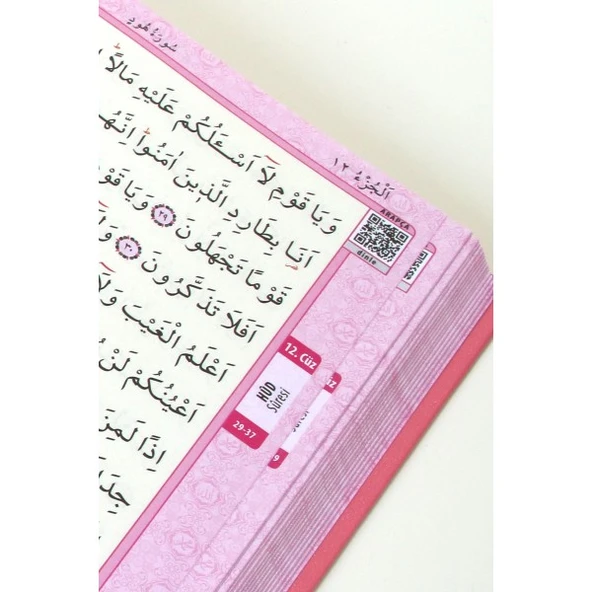 سُورَةُ هُودٍ
اَلْجُزْءُ ١٢
وَيَا قَوْمِ لَٓا اَسْـَٔلُكُمْ عَلَيْهِ مَالًا
اَنَا۬ بِطَارِدِ الَّذٖينَ اٰمَنُواۜ اِنَّهُمْ
قَوْمًا تَجْهَلُونَ ٢٩ وَيَا قَوْمِ
اَفَلَا تَذَكَّرُونَ ٣٠
اَعْلَمُ الْغَيْبَ وَلَٓا
اَعْيُنُكُمْ لَنْ
اِذًا لَمِنَ
ARAPÇA
dinle
12. Cüz
HÛD
Sûresi
29-37